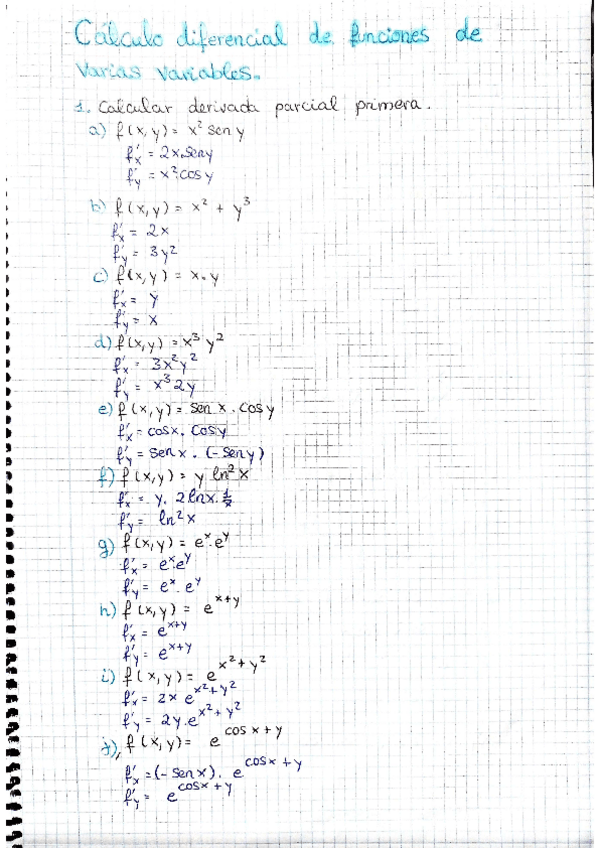 Calculo diferencial de funciones de
varias variables.
1. Calcular derivada parcial primera.
a) f(x,y) = x² sen y
f'x = 2x.seny
f'y = x².cos y
b) f(x,y) = x² + y³
f'x = 2x
f'y = 3y²
c) f(x,y) = x.y
f'x = y
f'y = x
d) f(x,y) = x³ y²
f'x = 3x²y²
f'y = x³2y
e) f(x,y) = sen x . cos y
f'x = cosx. cosy
f'y = senx . (-seny)
f) f(x,y) = y ln²x
f'x = y. 2lnx.1/x
f'y = ln²x
g) f(x,y) = eˣ.eʸ
f'x = eˣ.eʸ
f'y = eˣ.eʸ
h) f(x,y) = e^x+y
f'x = e^x+y
f'y = e^x+y
i) f(x,y) = e^x²+y²
f'x = 2x e^x²+y²
f'y = 2y.e^x²+y²
j) f(x,y) = e^cos x+y
f'x = (-senx). e^cosx+y
f'y = e^cosx+y